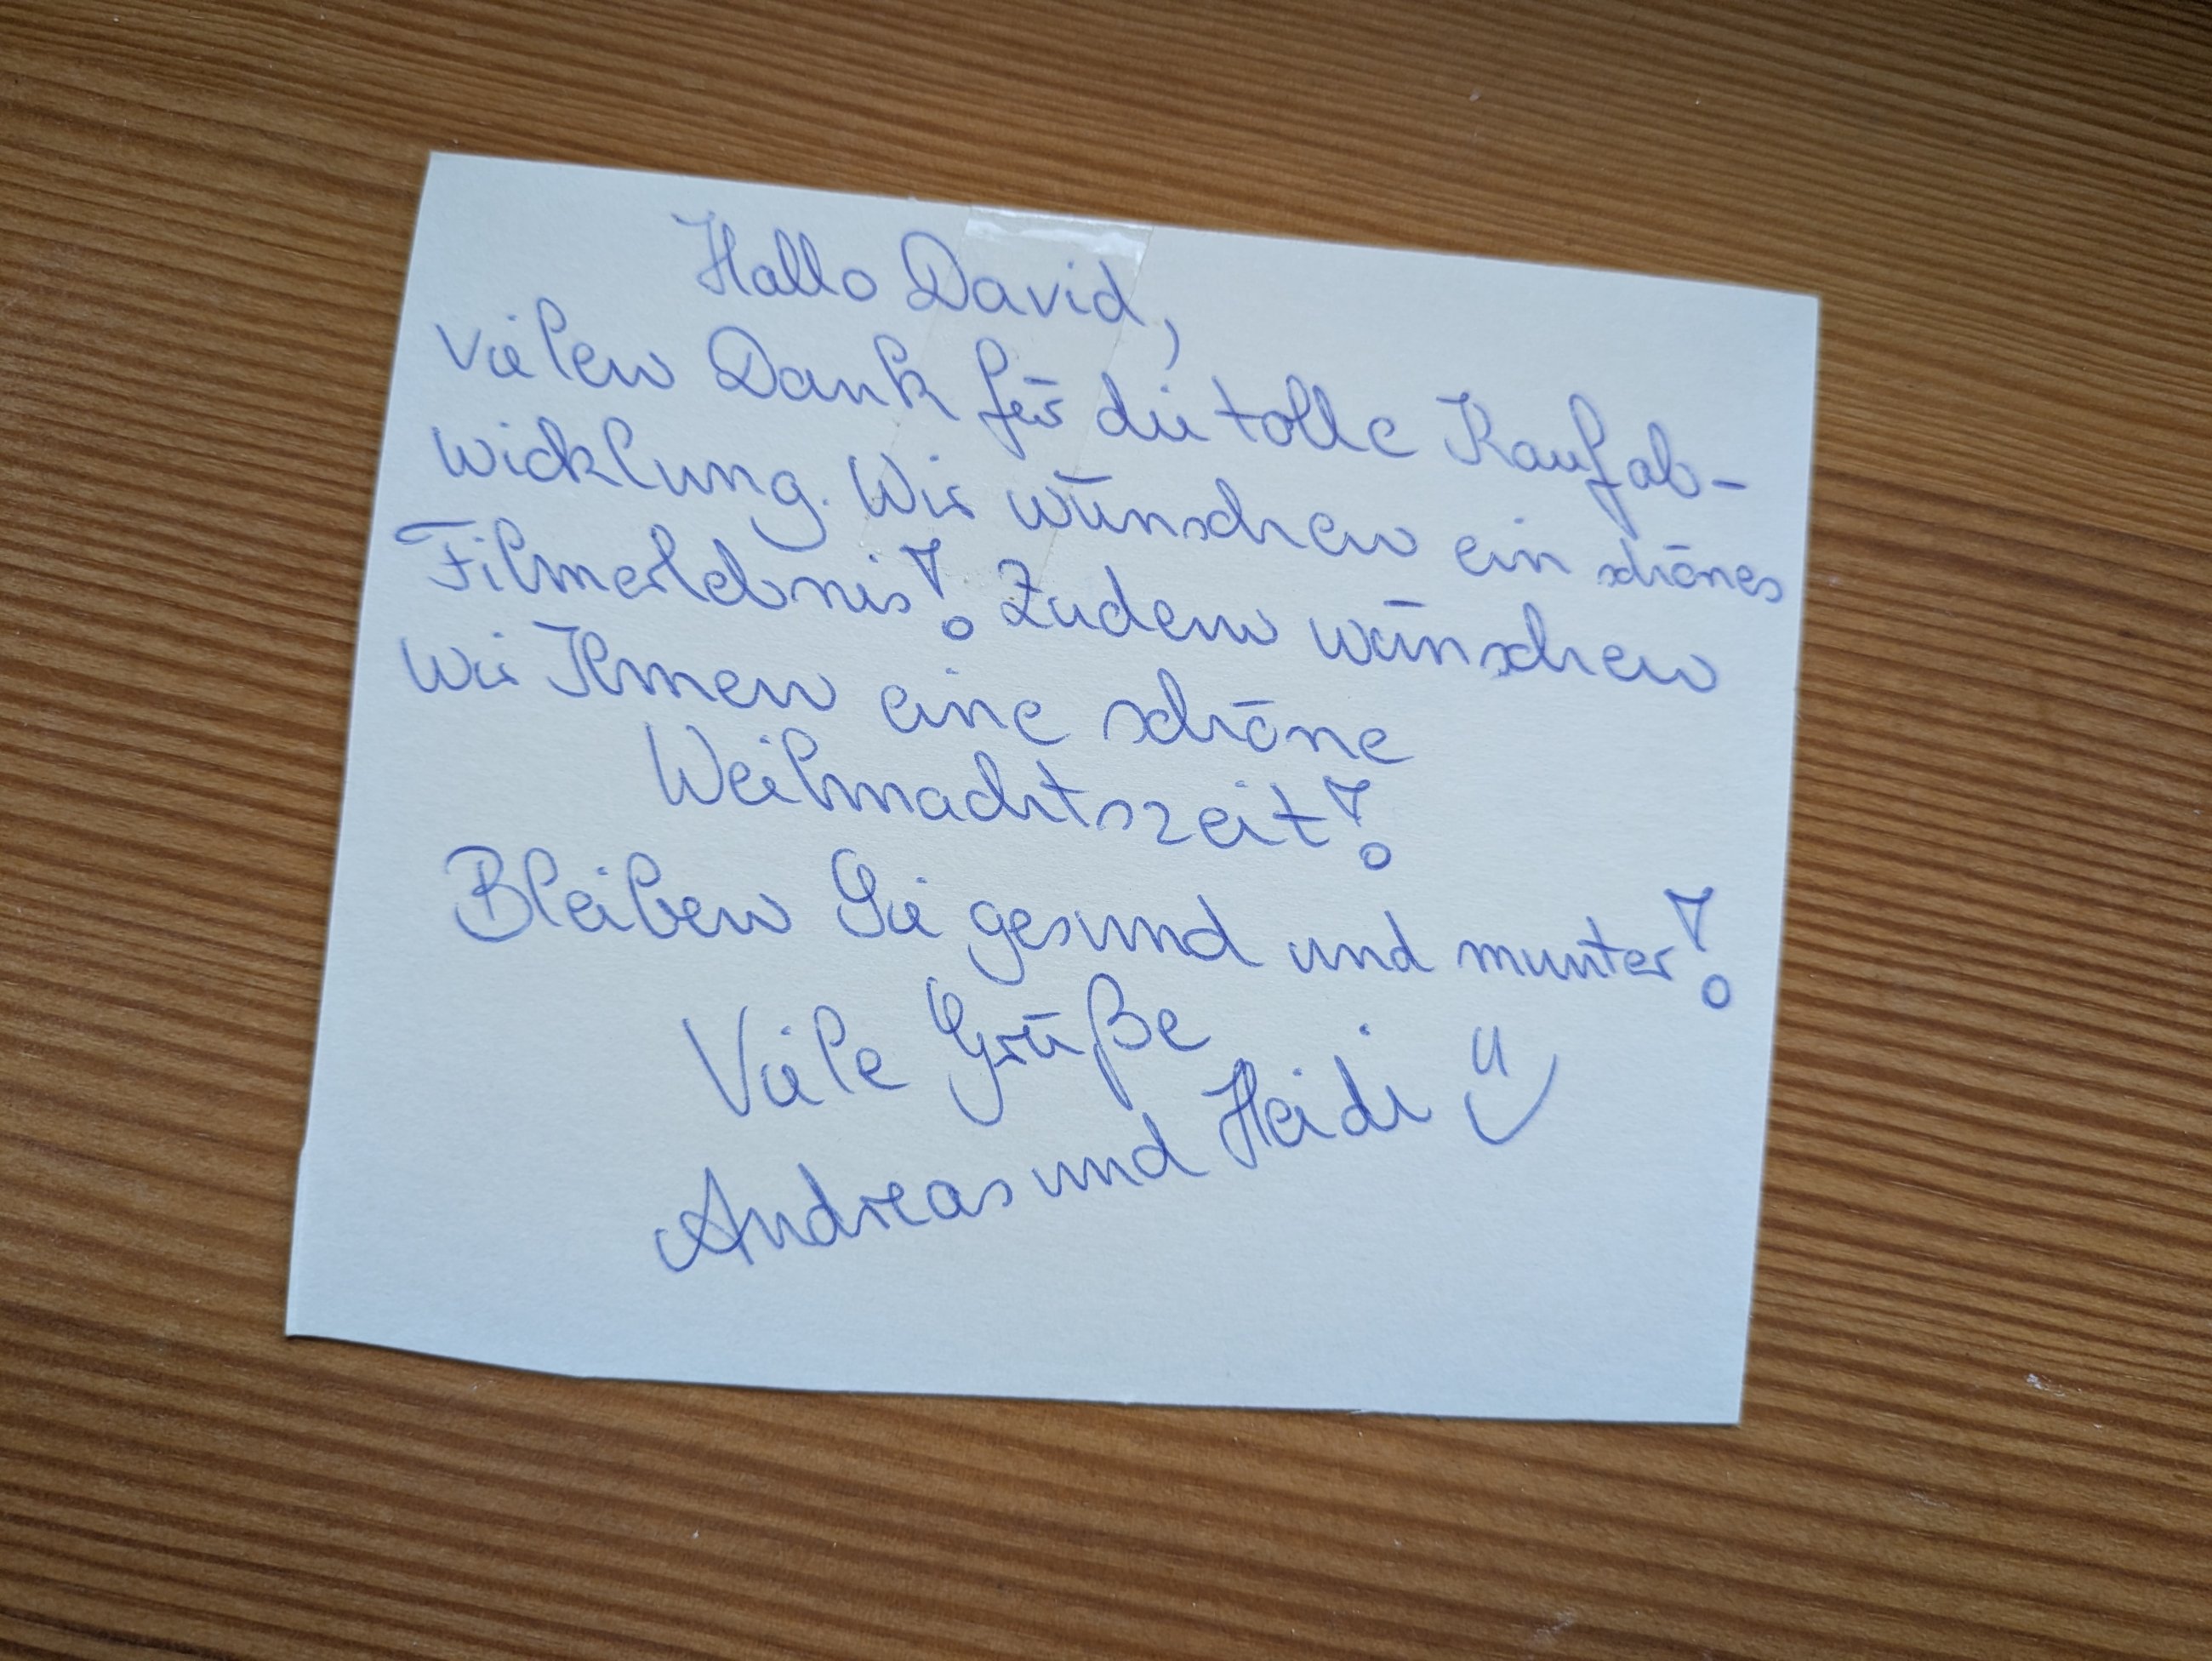 Hallo David,
vielen Dank für die tolle Kaufab-
wicklung. Wir wünschen ein schönes
Filmerlebnis! Zudem wünschen
wir Ihnen eine schöne
Weihnachtszeit!
Bleiben Sie gesund und munter!
Viele Grüße
Andreas und Heidi